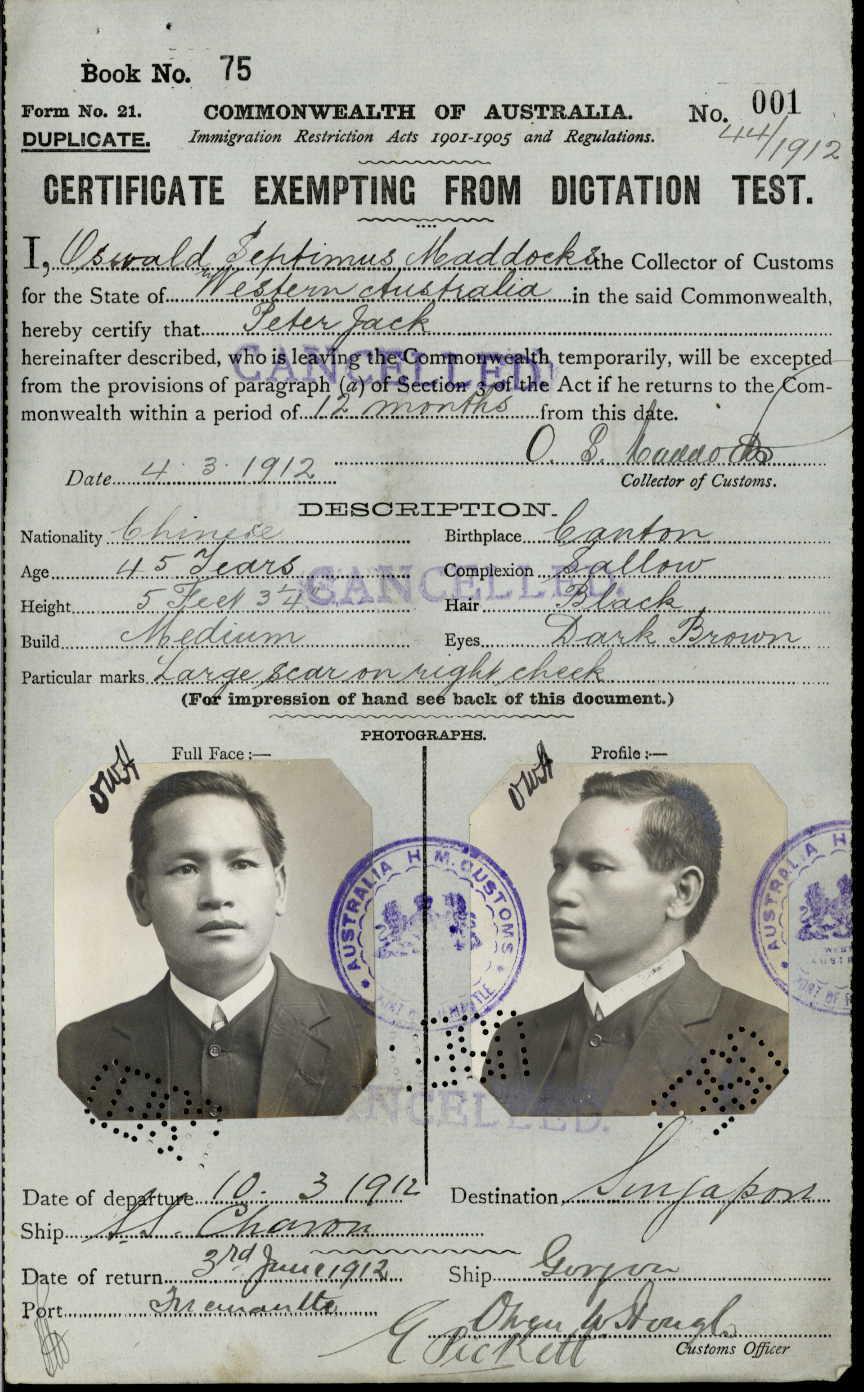 Book No. 75
Form No. 21. COMMONWEALTH OF AUSTRALIA. No. 001
DUPLICATE. Immigration Restriction Acts 1901-1905 and Regulations. 44/1912
CERTIFICATE EXEMPTING FROM DICTATION TEST.
I, Oswald Septimus Maddocks the Collector of Customs
for the State of Western Australia in the said Commonwealth,
hereby certify that Peter Jack
hereinafter described, who is leaving the Commonwealth temporarily, will be excepted
CANCELLED.
from the provisions of paragraph (a) of Section 3 of the Act if he returns to the Com-
monwealth within a period of 12 months from this date.
O. S. Maddocks
Date 4.3.1912 Collector of Customs.
DESCRIPTION.
Nationality Chinese Birthplace Canton
Age 45 Years Complexion Sallow
CANCELLED.
Height 5 Feet 3 1/4" Hair Black
Build Medium Eyes Dark Brown
Particular marks Large scar on right cheek
(For impression of hand see back of this document.)
PHOTOGRAPHS.
Full Face:— Profile:—
OWA OWA
AUSTRALIA H.M. CUSTOMS
PORT OF FREMANTLE
AUSTRALIA H
WEST
AUSTR
PORT OF F
CANCELLED.
Date of departure 10-3 1912 Destination Singapore
Ship S.S. Charon
Date of return 3rd June 1912 Ship Gorgon
Port Fremantle
G Pickett
Customs Officer